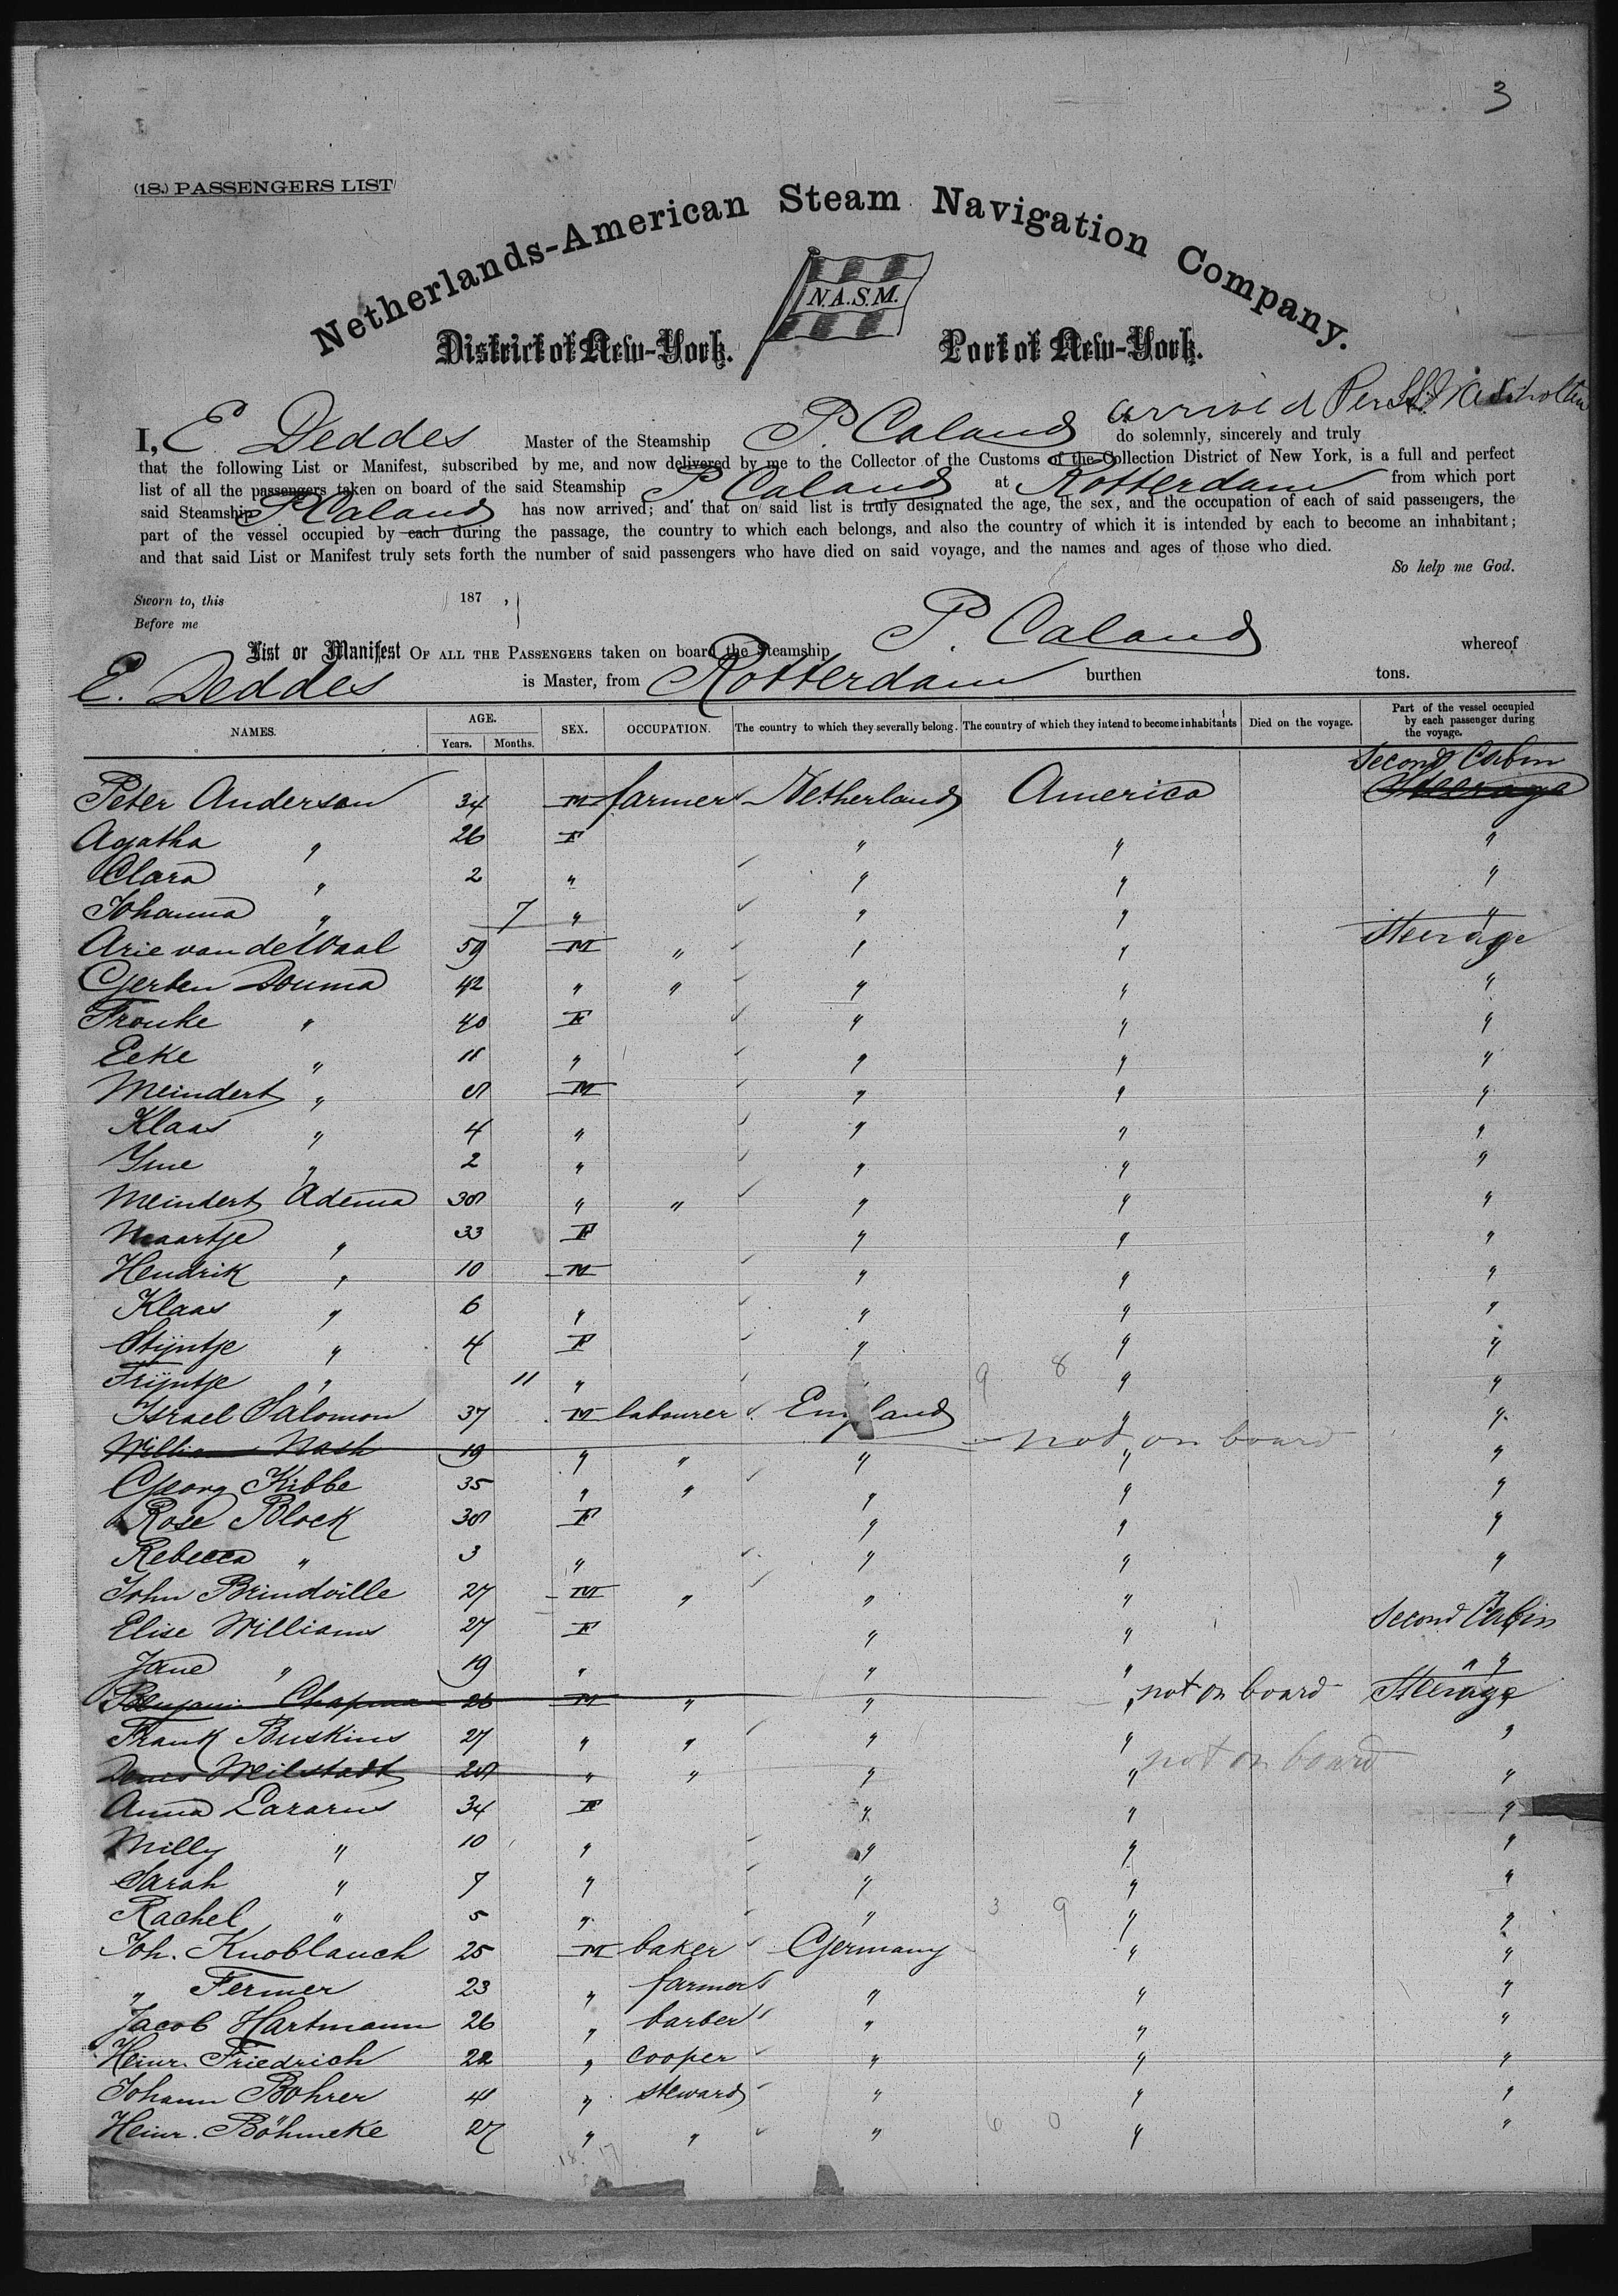 3
(18.) PASSENGERS LIST
Netherlands-American Steam Navigation Company.
N.A.S.M.
District of New-York. Port of New-York.
arrived Per SS W A Scholten
I, E. Deddes Master of the Steamship P. Caland do solemnly, sincerely and truly
that the following List or Manifest, subscribed by me, and now delivered by me to the Collector of the Customs of the Collection District of New York, is a full and perfect
list of all the passengers taken on board of the said Steamship P Caland at Rotterdam from which port
said Steamship P Caland has now arrived; and that on said list is truly designated the age, the sex, and the occupation of each of said passengers, the
part of the vessel occupied by each during the passage, the country to which each belongs, and also the country of which it is intended by each to become an inhabitant;
and that said List or Manifest truly sets forth the number of said passengers who have died on said voyage, and the names and ages of those who died.
So help me God.
Sworn to, this 187 ,
Before me
List or Manifest OF ALL THE PASSENGERS taken on board the Steamship P. Caland whereof
E. Deddes is Master, from Rotterdam burthen tons.
NAMES. AGE. Years. Months. SEX. OCCUPATION. The country to which they severally belong. The country of which they intend to become inhabitants Died on the voyage. Part of the vessel occupied by each passenger during the voyage.
Second Cabin
Peter Anderson 34 M farmer Netherland America Steerage
Agatha " 26 F " " "
Clara " 2 " " " "
Johanna " 7 " " " "
Arie van de Waal 59 M " " " Steerage
Gerben Douma 42 " " " " "
Frouke " 40 F " " "
Eeke " 11 " " " "
Meindert " 8 M " " "
Klaas " 4 " " " "
Yme " 2 " " " "
Meindert Adema 38 " " " " "
Maartje " 33 F " " "
Hendrik " 10 M " " "
Klaas " 6 " " " "
Stijntje " 4 F " " "
Trijntje " 11 " " 9 8 " "
Israel Salomon 37 M labourer England " "
William Nash 19 " " " " not on board "
Georg Kibbe 35 " " " " "
Rose Block 38 F " " "
Rebecca " 3 " " " "
John Brindville 27 M " " " "
Elise Williams 27 F " " Second Cabin
Jane " 19 " " " " "
Benjamin Chapman 26 M " " " not on board Steerage
Frank Buskins 27 " " " " "
Weilstadt 28 " " " " not on board "
Anna Lazarus 34 F " " "
Milly " 10 " " " "
Sarah " 7 " " " "
Rachel " 5 " " 3 9 " "
Joh. Knoblauch 25 M baker Germany " "
" Fermer 23 " farmer " " "
Jacob Hartmann 26 " barber " " "
Heinr. Friedrich 22 " cooper " " "
Johann Bohrer 41 " steward " " "
Heinr. Böhmeke 27 " " " 6 0 " "
18 17